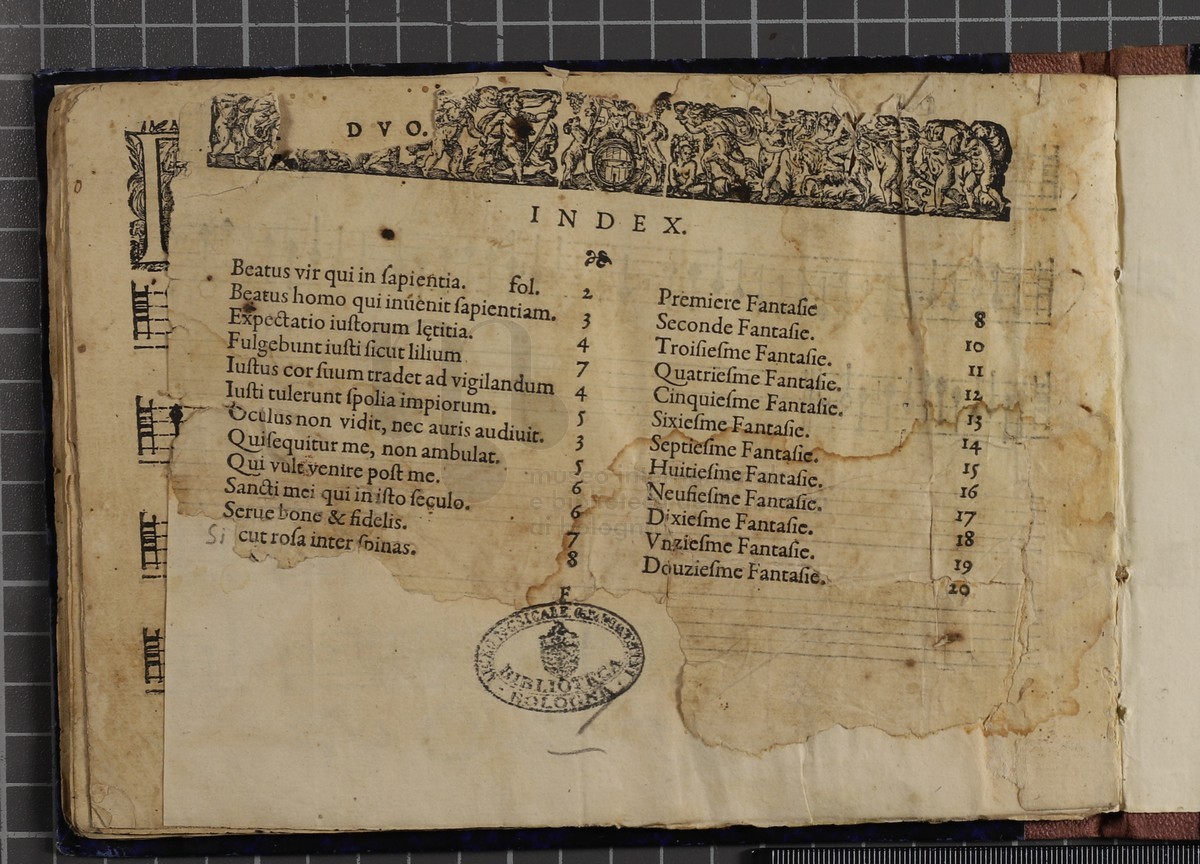 DVO.
INDEX.
Beatus vir qui in ſapientia. fol. 2
Beatus homo qui inuenit ſapientiam. 3
Expectatio iuſtorum lętitia. 4
Fulgebunt iuſti ſicut lilium 7
Iuſtus cor ſuum tradet ad vigilandum 4
Iuſti tulerunt ſpolia impiorum. 5
Oculus non vidit, nec auris audiuit. 3
Quiſequitur me, non ambulat. 5
Qui vult venire poſt me. 6
Sancti mei qui in iſto ſeculo. 6
Serue bone & fidelis. 7
Sicut roſa inter ſpinas. 8
Premiere Fantaſie 8
Seconde Fantaſie. 10
Troiſieſme Fantaſie. 11
Quatrieſme Fantaſie. 12
Cinquieſme Fantaſie. 13
Sixieſme Fantaſie. 14
Septieſme Fantaſie. 15
Huitieſme Fantaſie. 16
Neufieſme Fantaſie. 17
Dixieſme Fantaſie. 18
Vnzieſme Fantaſie. 19
Douzieſme Fantaſie. 20
BIBLIOTECA
BOLOGNA
museo
di bologna